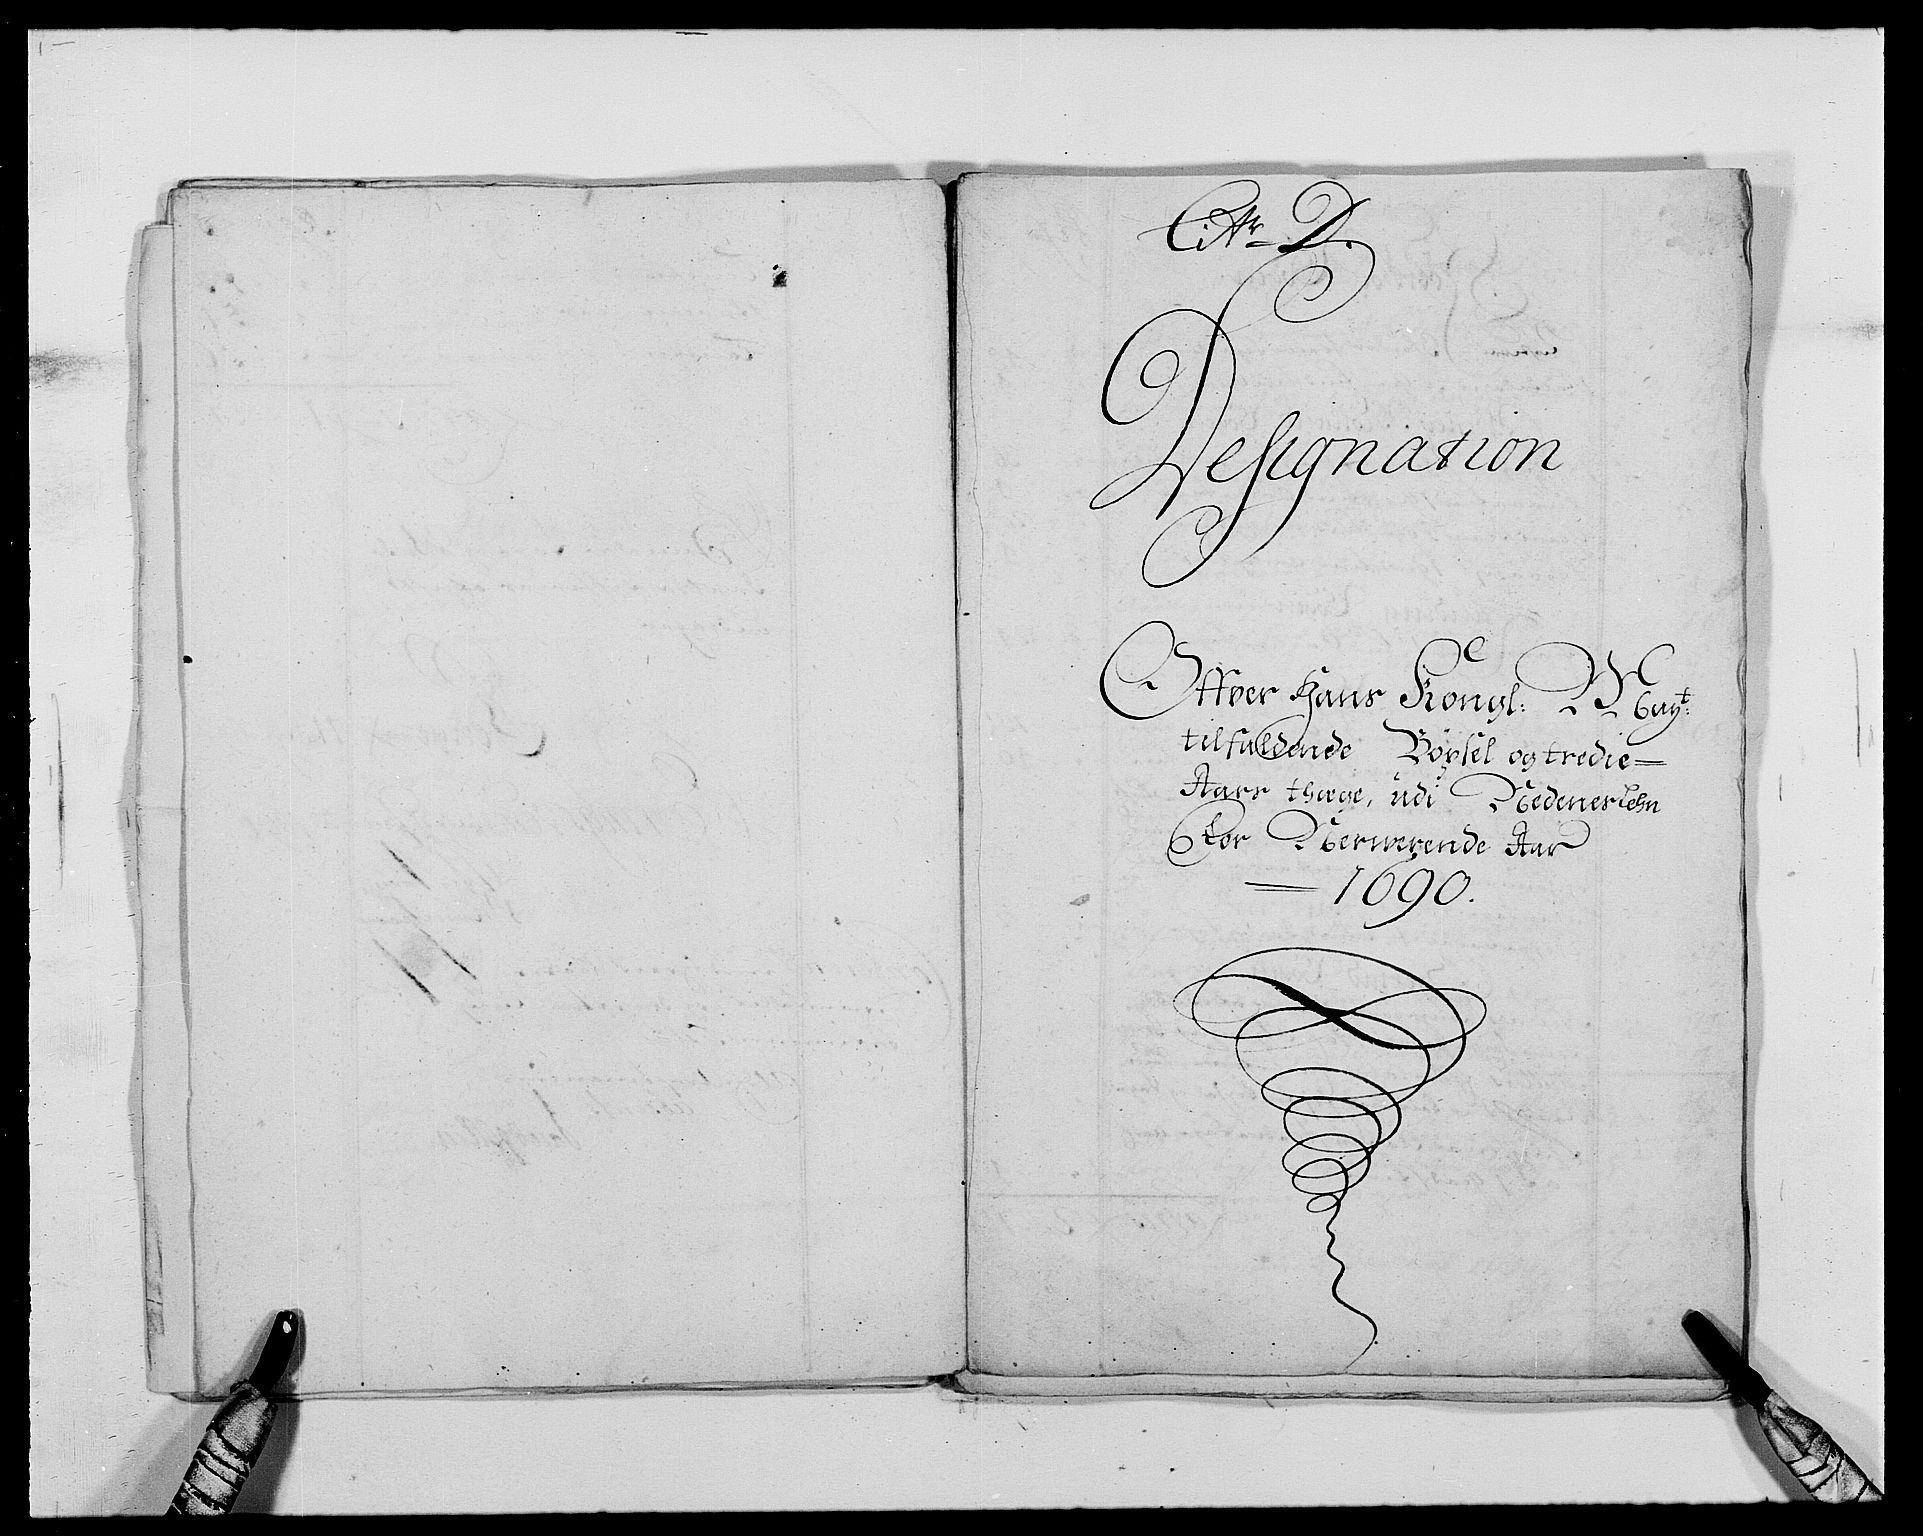 Litr D.
Designation
Offver Hans Kongl: Mayt:
tilfaldende Böxsel og tredie=
Aars thæge, udi Nedeneslehn
For Nerwerende Aar
1690.